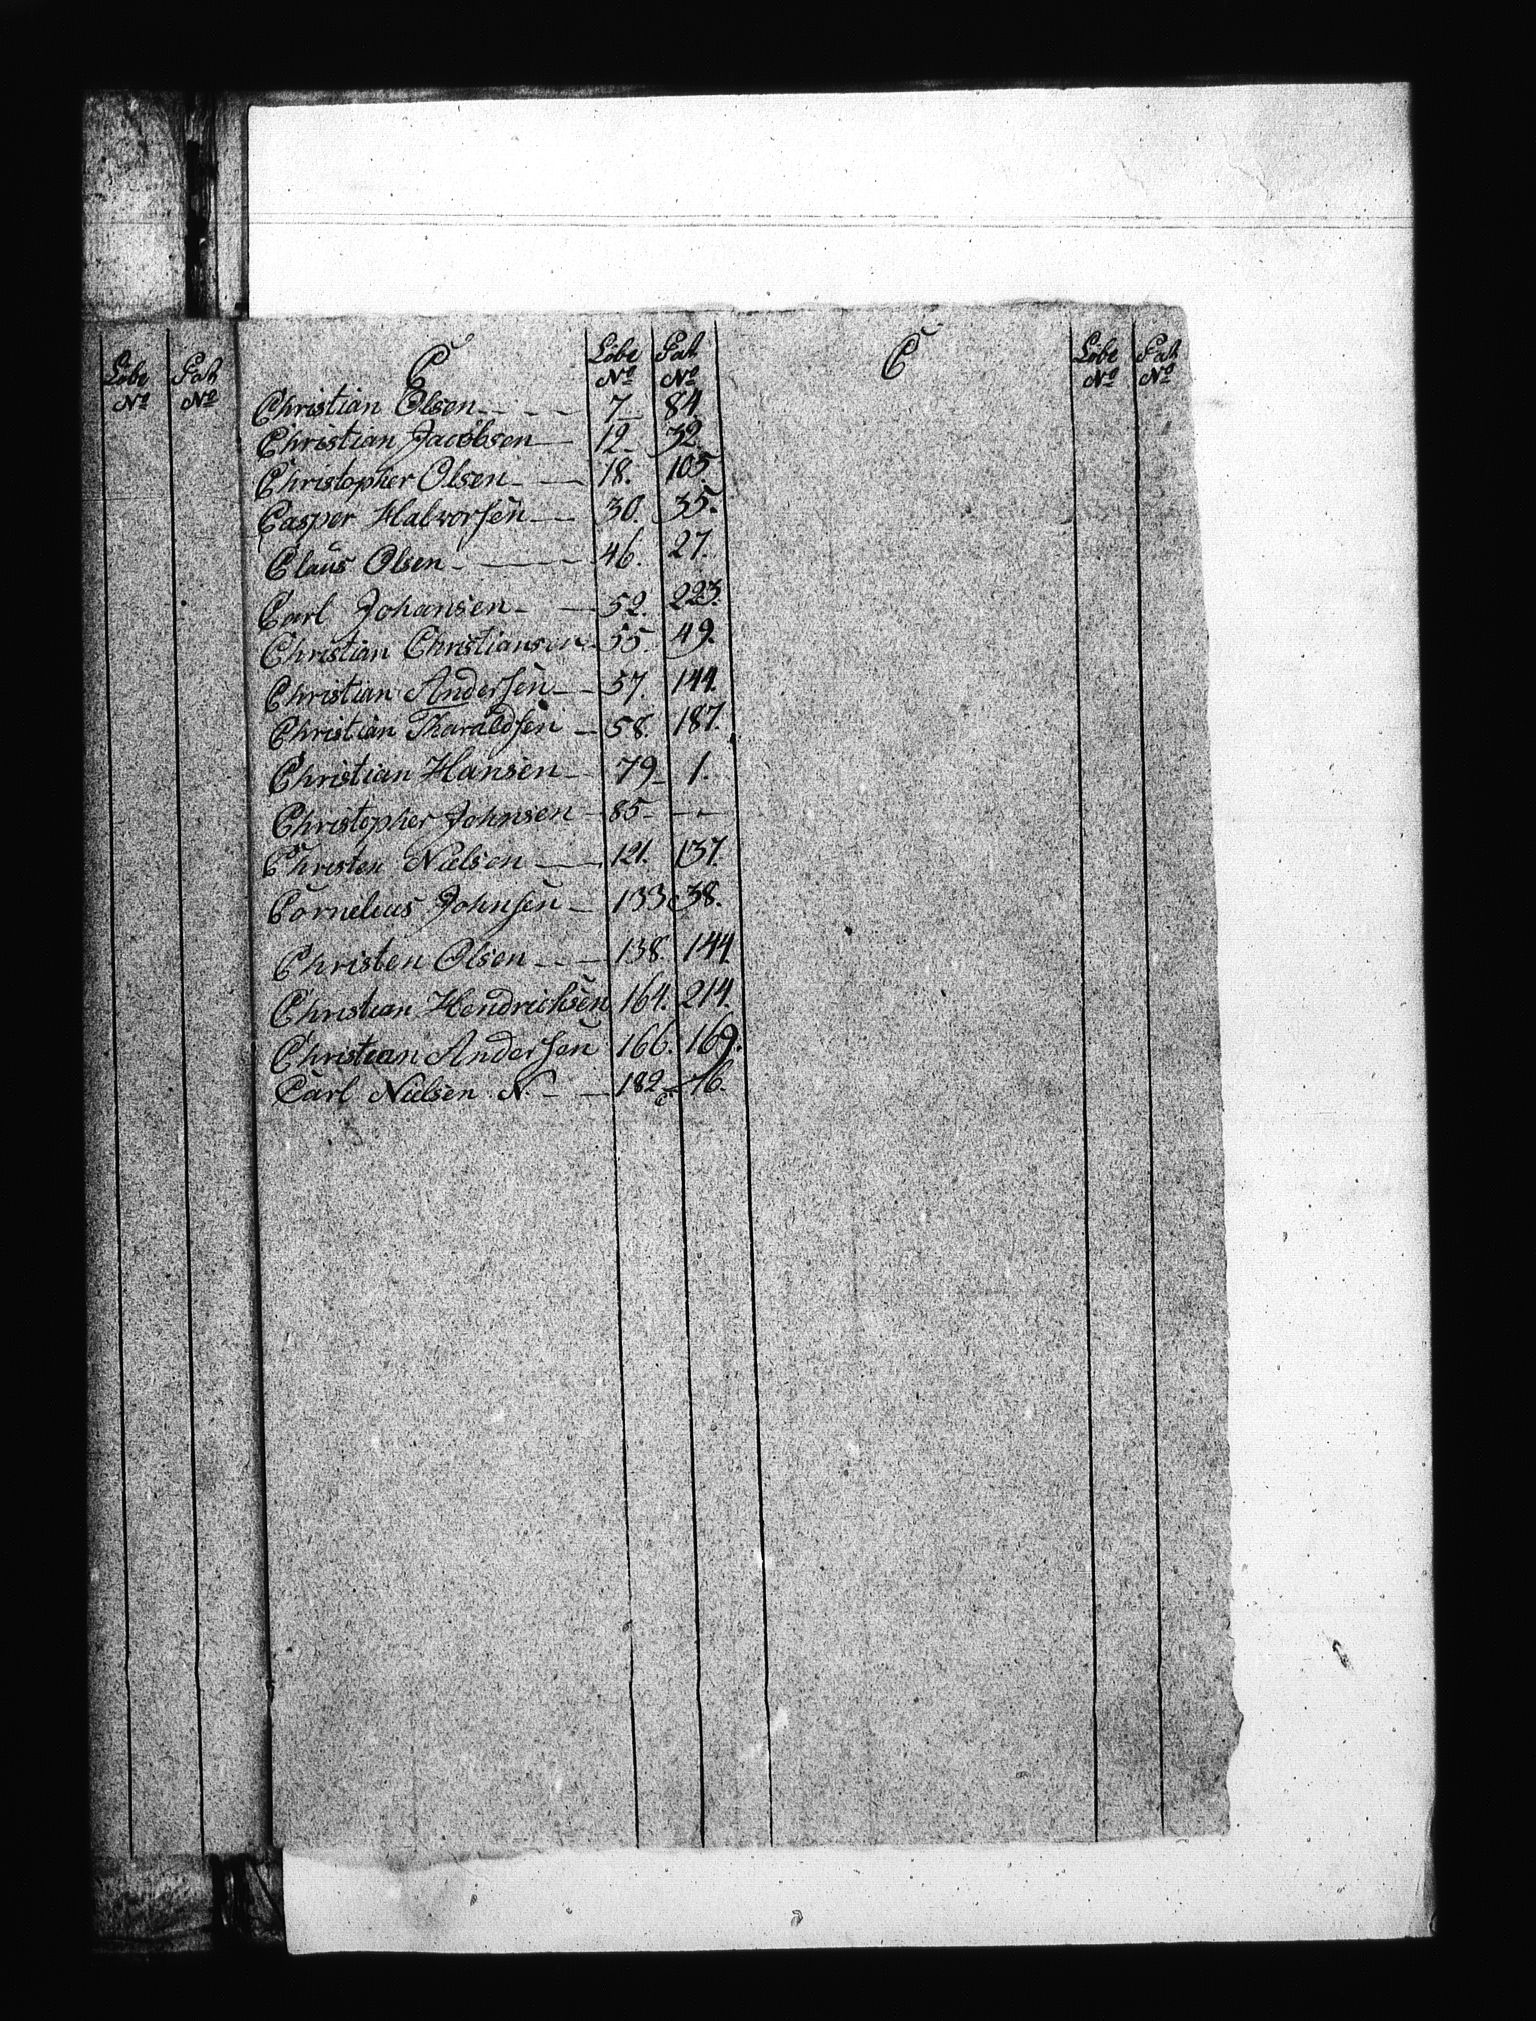 Löbe No Pat No
C Löbe No Pat No
Christian Olsen 7 84
Christian Jacobsen 12 32.
Christopher Olsen 18. 105.
Casper Halvorsen 30. 35.
Claus Olsen 46. 27.
Carl Johansen 52. 223.
Christian Christiansen 55. 49.
Christian Andersen 57. 144.
Christian Tharaldsen 58. 187.
Christian Hansen 79 1.
Christopher Johnsen 85 —
Christen Nielsen 121. 137.
Cornelius Johnsen 133 38.
Christen Olsen 138. 144
Christian Hendrichsen 164. 214.
Christian Andersen 166. 169.
Carl Nielsen N. 182 16.
C Löbe No Pat No